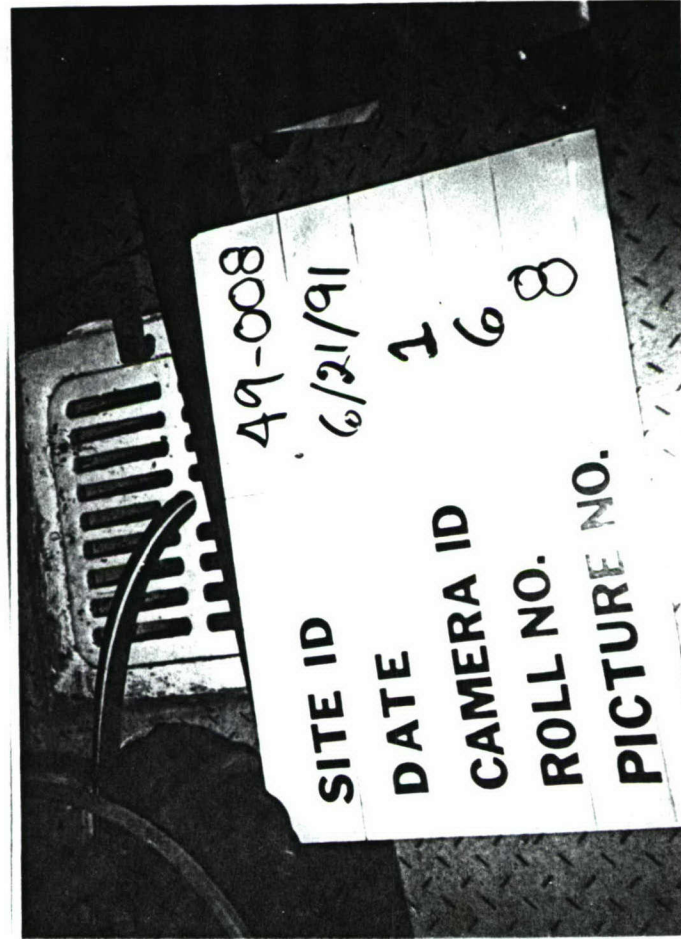 SITE ID 49-008
DATE 6/21/91
CAMERA ID 1
ROLL NO. 6
PICTURE NO. 8